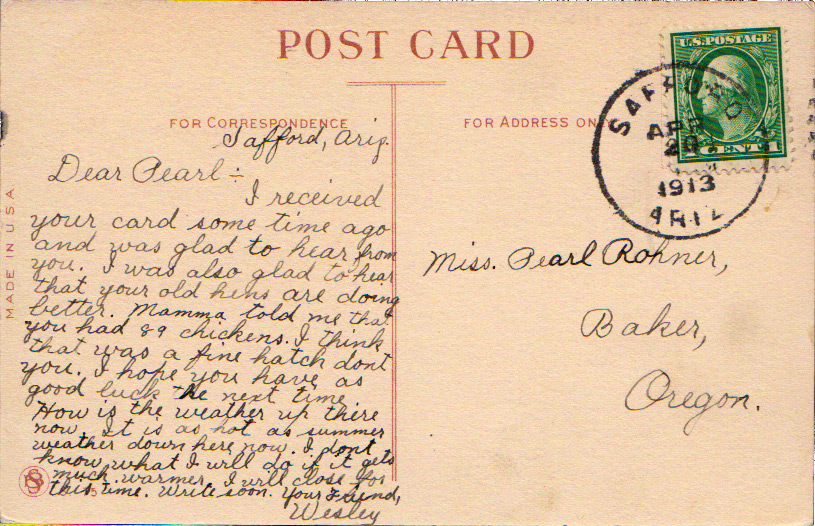 POST CARD
U.S. POSTAGE
1 CENT 1
SAFFORD
APR
20
1913
ARIZ
FOR CORRESPONDENCE
FOR ADDRESS ON
MADE IN USA
Safford, Ariz.
Dear Pearl -
I received
your card some time ago
and was glad to hear from
you. I was also glad to hear
that your old hens are doing
better. Mamma told me that
you had 89 chickens. I think
that was a fine hatch dont
you. I hope you have as
good luck the next time
How is the weather up there
now. It is as hot as summer
weather down here now. I dont
know what I will do if it gets
much warmer. I will close for
this time. Write soon. Your Friend,
Wesley
Miss. Pearl Rohner,
Baker,
Oregon.